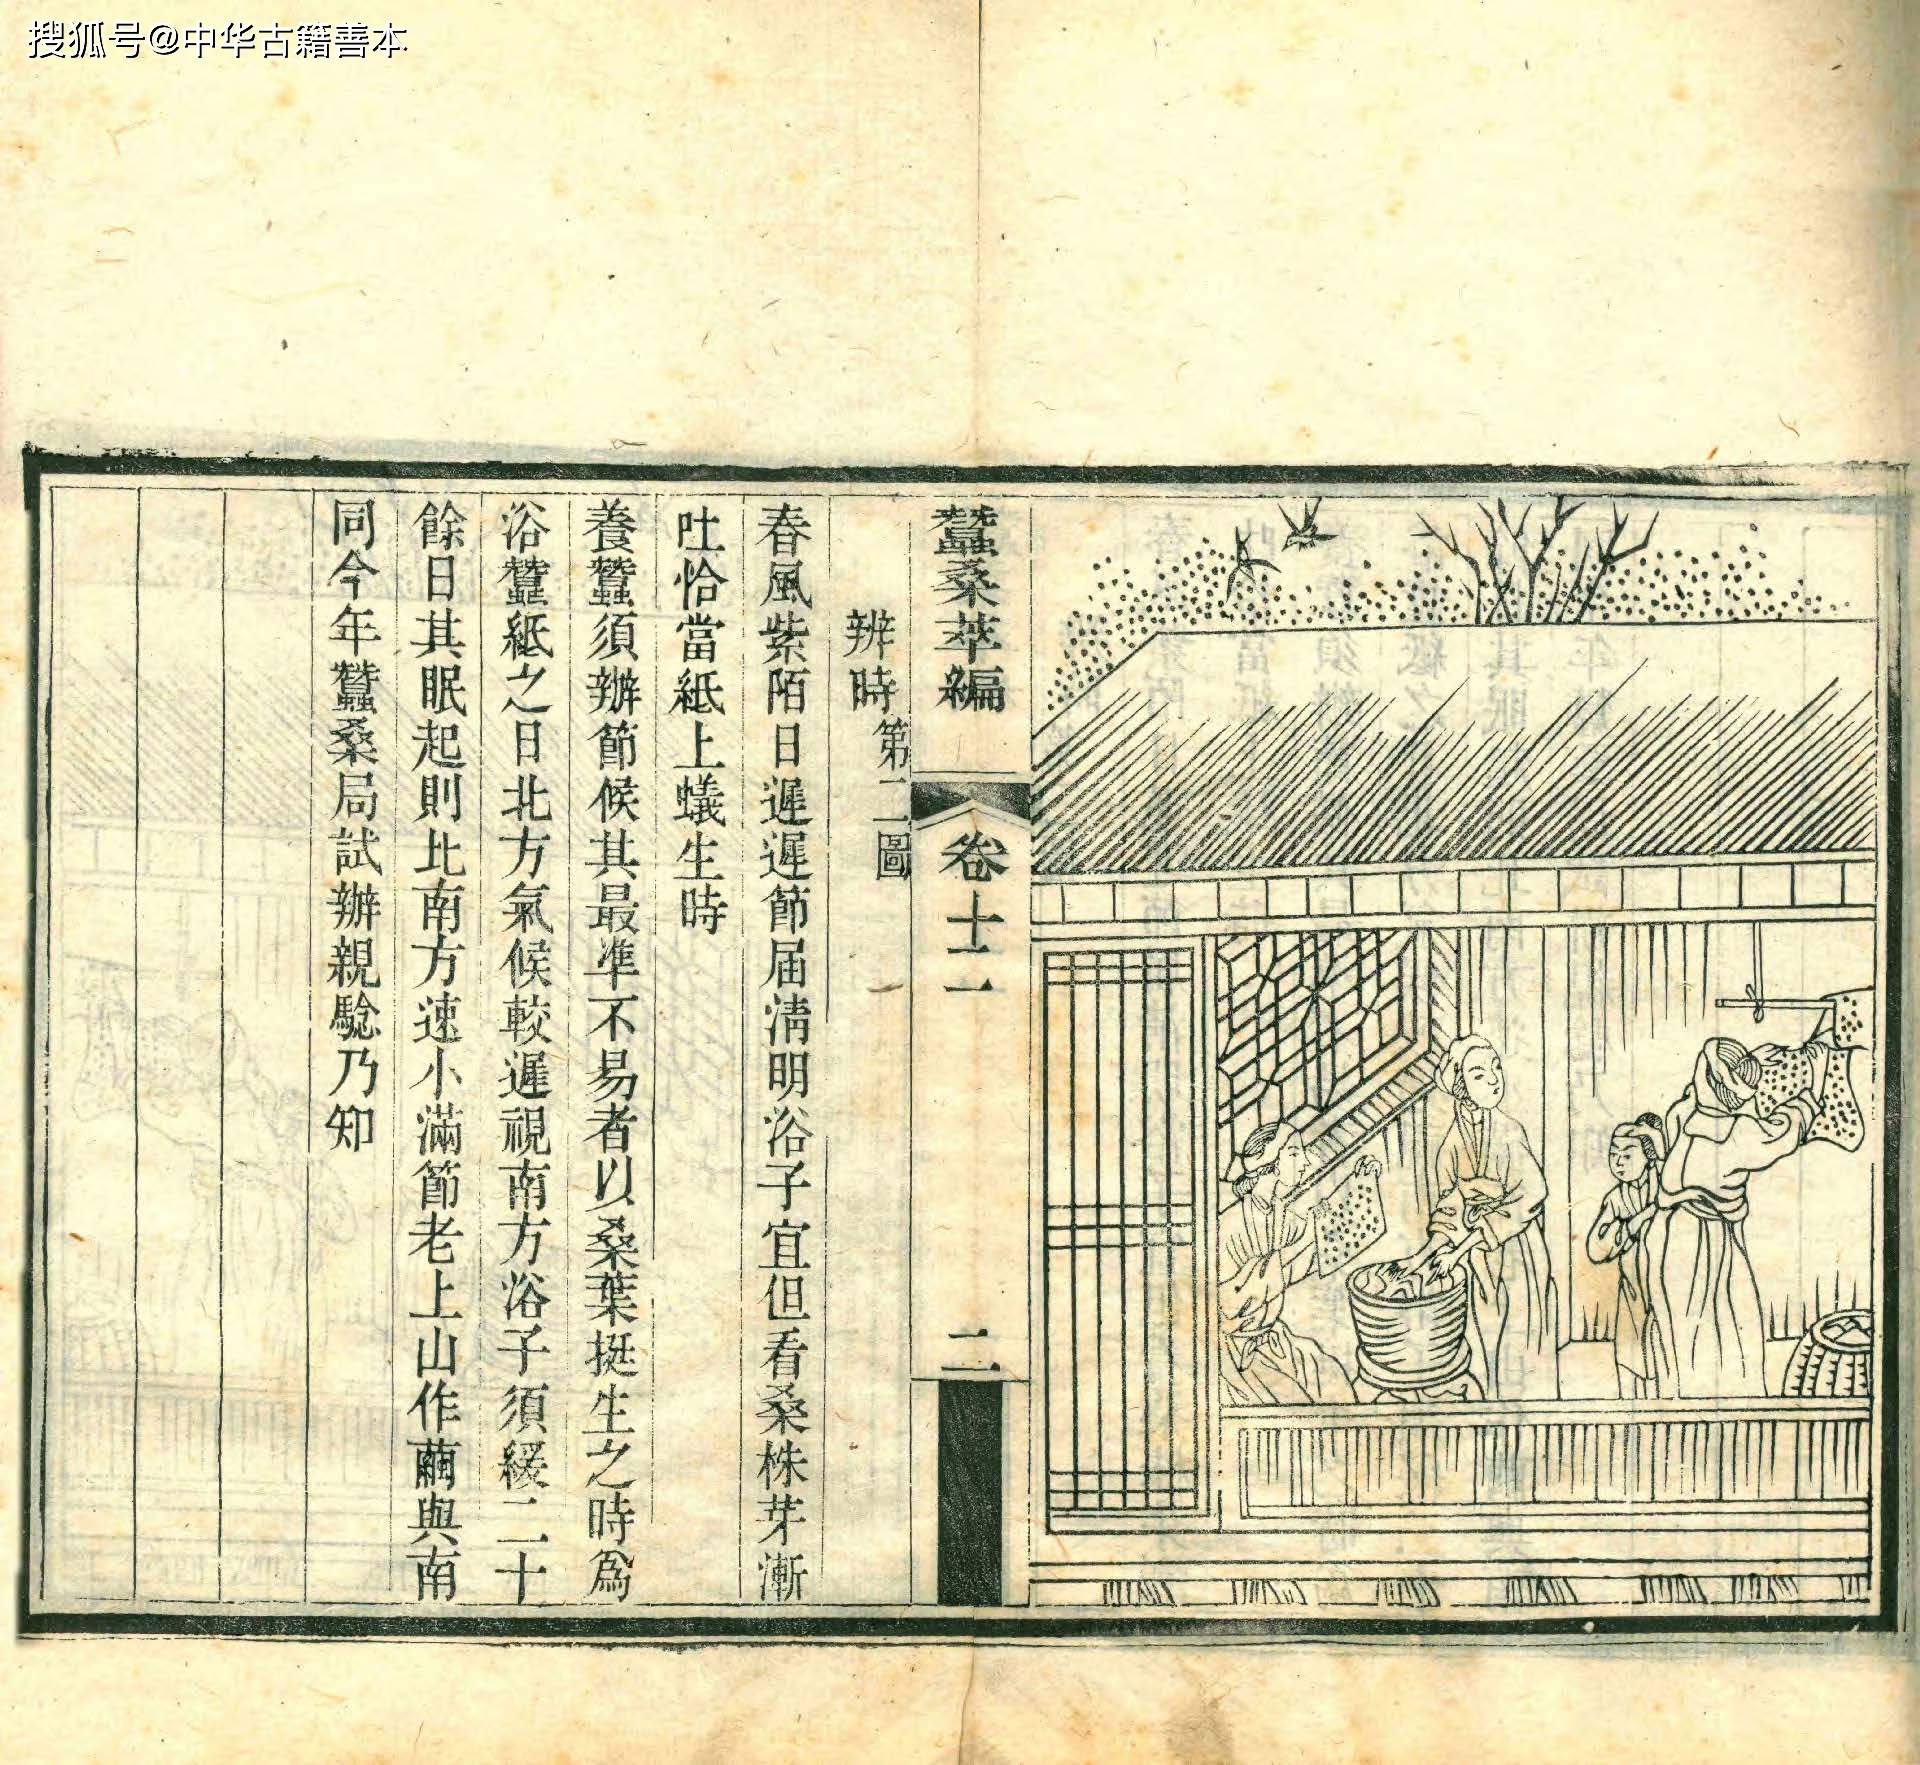 搜狐号@中华古籍善本
蠶桑萃編
卷十一
二
辨時第二圖
春風紫陌日遲遲節届淸明浴子宜但看桑株芽漸
吐恰當紙上蟻生時
養蠶須辦節候其最準不易者以桑葉挺生之時爲
浴蠶紙之日北方氣候較遲視南方浴子須緩二十
餘日其眠起則比南方速小滿節老上山作繭與南
同今年蠶桑局試辦親騐乃知